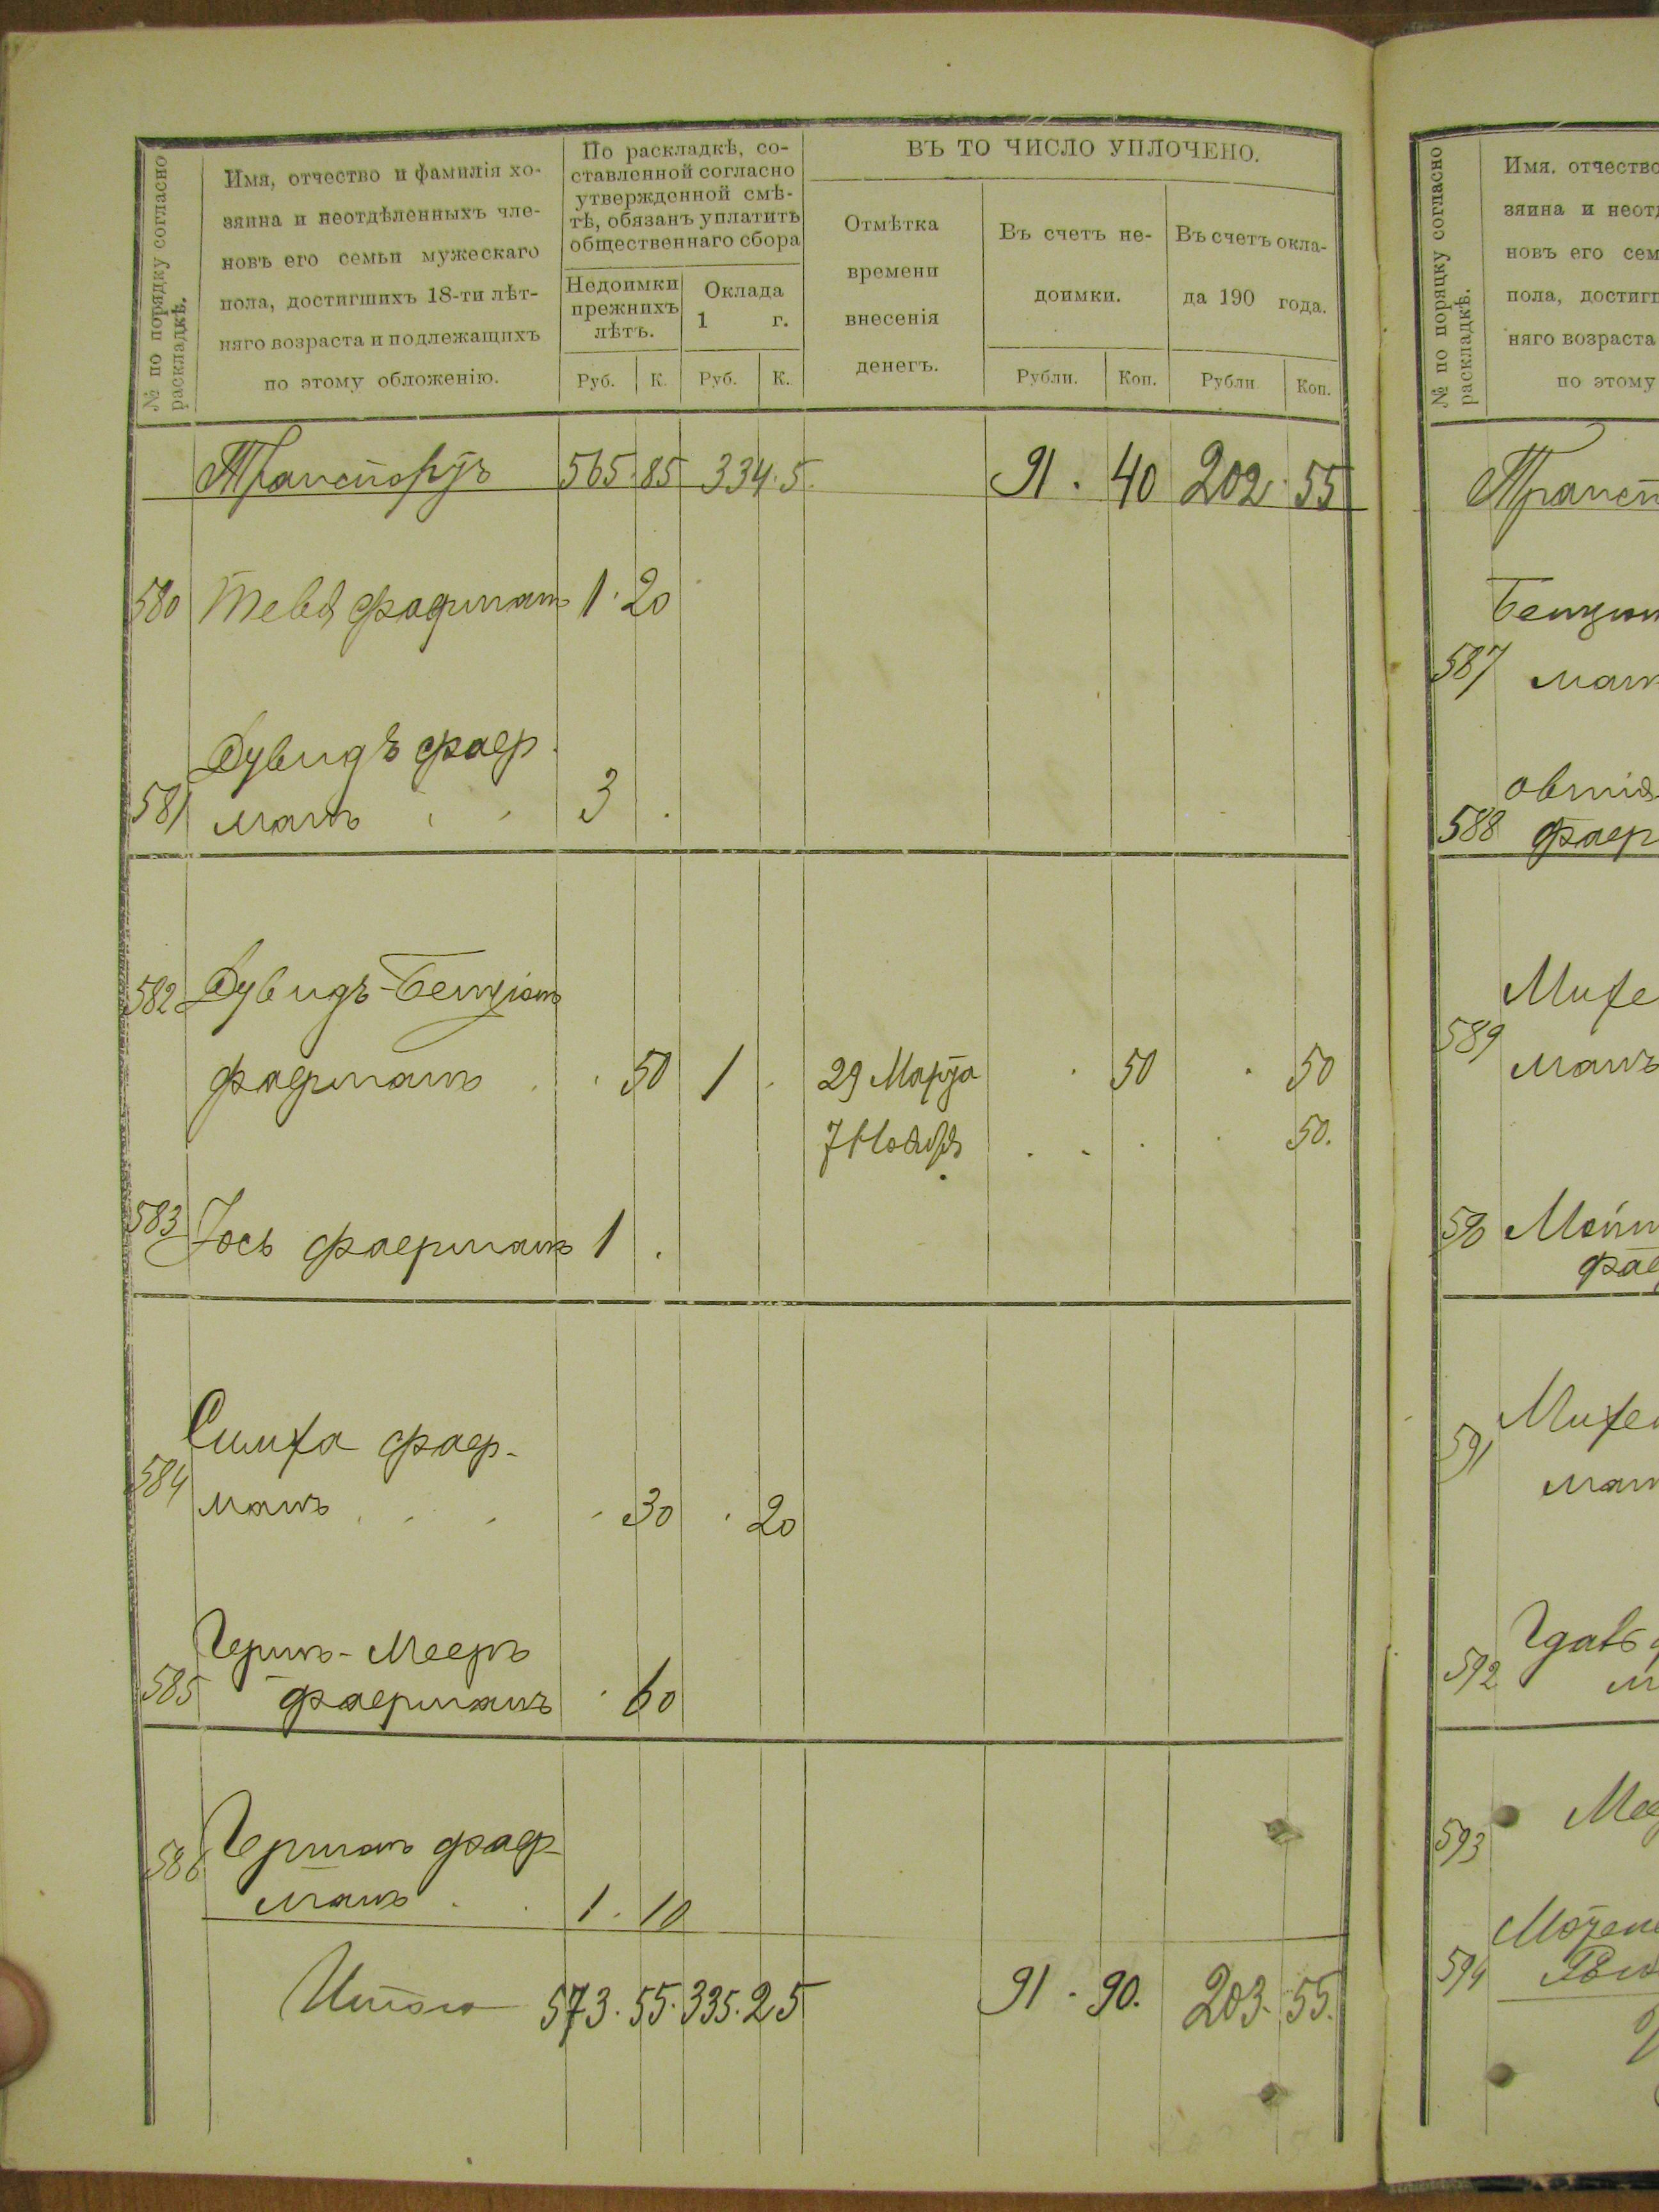 № по порядку согласно
раскладкѣ.
Имя, отчество и фамилія хо-
зяина и неотдѣленныхъ чле-
новъ его семьи мужескаго
пола, достигшихъ 18-ти лѣт-
няго возраста и подлежащихъ
по этому обложенію.
По раскладкѣ, со-
ставленной согласно
утвержденной смѣ-
тѣ, обязанъ уплатить
общественнаго сбора
Недоимки
прежнихъ
лѣтъ.
Оклада
1 г.
Руб. К. Руб. К.
ВЪ ТО ЧИСЛО УПЛОЧЕНО.
Отмѣтка
времени
внесенія
денегъ.
Въ счетъ не-
доимки.
Въ счетъ окла-
да 190 года.
Рубли. Коп. Рубли Коп.
Транспортъ 565. 85 334. 5. 91. 40 202. 55
580 Тевя Фаерманъ 1. 20
Дувидъ Фаер
581 манъ 3 .
582 Дувидъ-Бенціонъ
Фаерманъ . . 50 1 . 29 Марта . 50 . 50
7 Ноября . . . . 50.
583 Іось Фаерманъ 1 .
Симха Фаер-
584 манъ . . . . 30 . 20
Герш-Мееръ
585 Фаерманъ . 60
586 Германъ Фаер-
манъ . . 1. 10
Итого 573. 55. 335. 25 91. 90. 203. 55.
№ по порядку согласно
раскладкѣ.
Имя. отчество
зяина и неотд
новъ его сем
пола, достиг
няго возраста
по этому
Трансп
587
ман
588 Фаер
Михе
589 манъ
590
Фае
591 Михе
ман
592
593
594